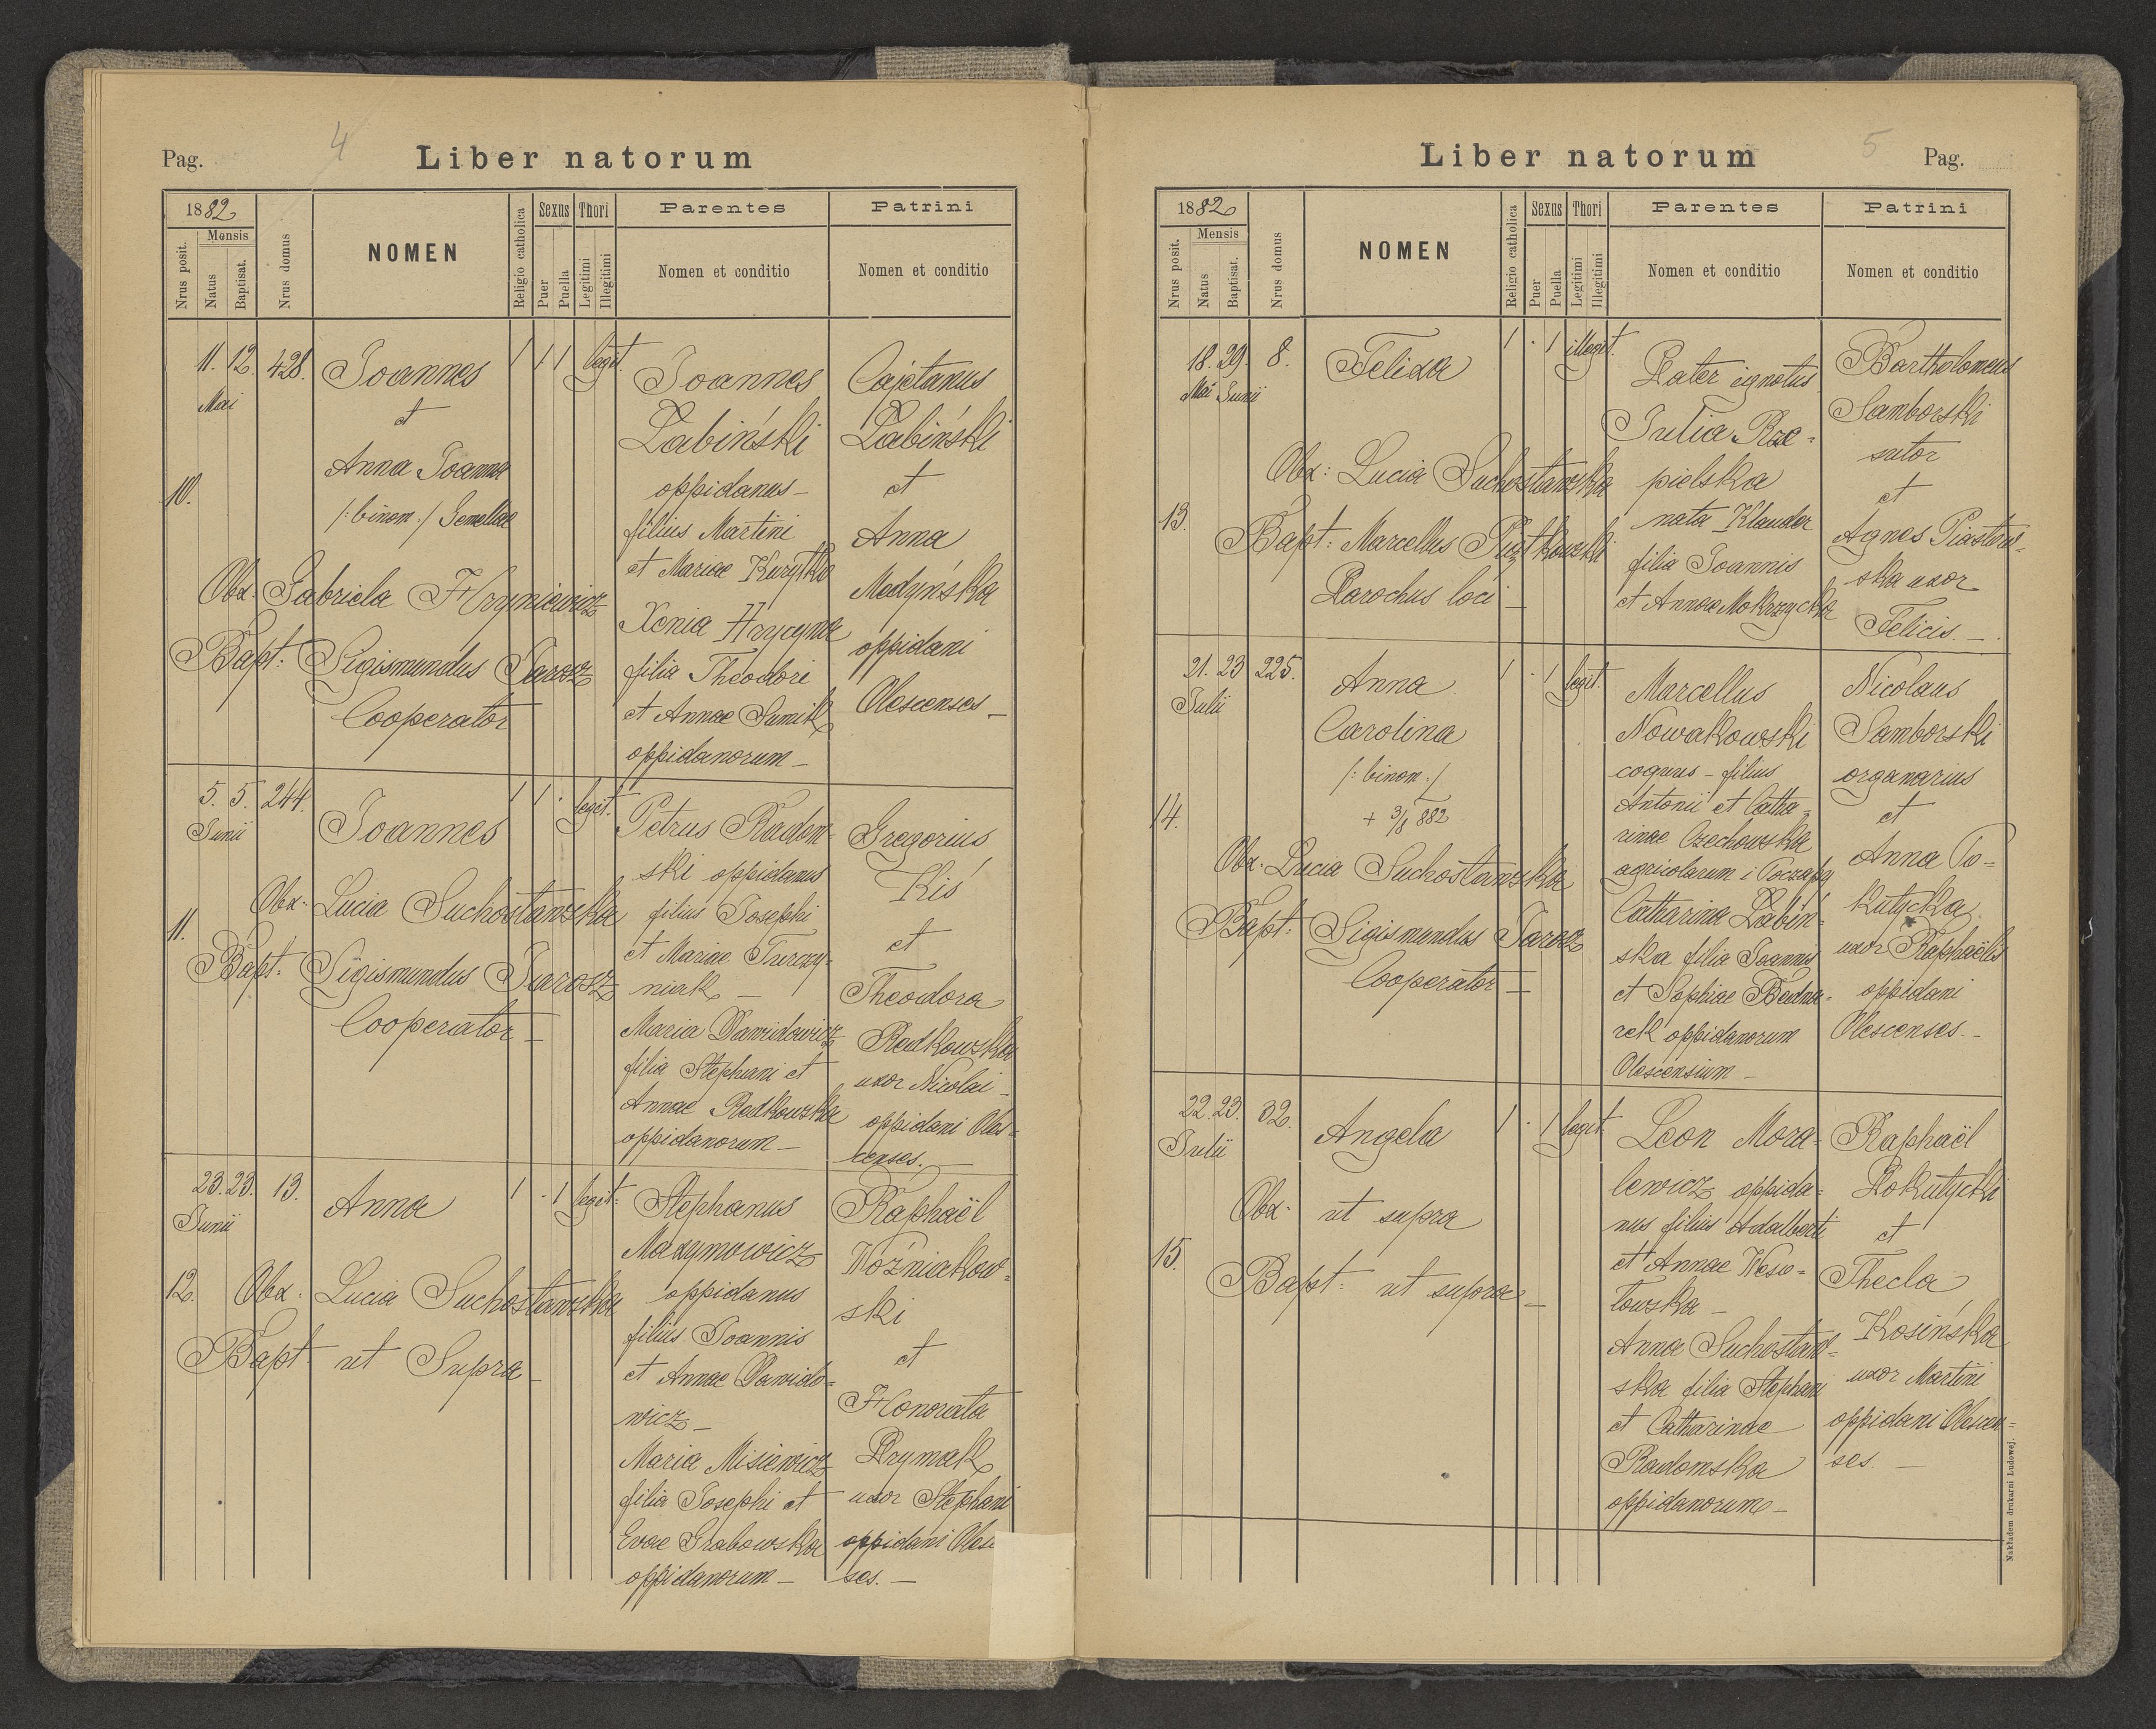 Pag.
4
Liber natorum
1882
Mensis
Nrus posit.
Natus
Baptisat.
Nrus domus
NOMEN
Religio catholica
Sexus
Puer
Puella
Thori
Legitimi
Illegitimi
Parentes
Nomen et conditio
Patrini
Nomen et conditio
10.
11. 12. 428.
Mai
Joannes
et
Anna Joanna
/: binom :/ Gemellae
Obx: Gabriela Hryniewicz
Bapt: Sigismundus Jarosz
Cooperator
1 1 1 legit.
Joannes
Łabiński
oppidanus –
filius Martini
et Mariae Kuryłko
Xenia Hrycyna
filia Theodori
et Annae
oppidanorum –
Cajetanus
Łabiński
et
Anna
Medyńska
oppidani
Olescenses –
11.
5. 5. 244.
Junii
Joannes
Obx: Lucia Suchostawska
Bapt: Sigismundus Jarosz
Cooperator –
1 1 · legit.
Petrus Radom-
ski oppidanus
filius Josephi
et Mariae Turczy-
niak –
Maria Dawidowicz
filia Stephani et
Annae Redkowska
oppidanorum –
Gregorius
Kiś
et
Theodora
Redkowska
uxor Nicolai –
oppidani Oles=
censes. –
12.
23. 23. 13.
Junii
Anna
Obx: Lucia Suchostawska
Bapt: ut Supra –
1 · 1 legit:
Stephanus
Maxymowicz
oppidanus
filius Joannis
et Annae Dawido=
wicz –
Maria Misiewicz
filia Josephi et
Evae Grabowska
oppidanorum –
Raphaël
Woźniakow-
ski
et
Honorata
Prymak
uxor Stephani
oppidani
ses. –
Liber natorum
5
Pag.
1882
Mensis
Nrus posit.
Natus
Baptisat.
Nrus domus
NOMEN
Religio catholica
Sexus
Puer
Puella
Thori
Legitimi
Illegitimi
Parentes
Nomen et conditio
Patrini
Nomen et conditio
13.
18. 29. 8.
Mai Junii
Felixa
Obx: Lucia Suchostawska
Bapt: Marcellus
Parochus loci –
1 · 1 illegit.
Pater ignotus
Julia Rze=
pielska
nata Klauder
filia Joannis
et Annae Mokrzycka
Bartholomeus
Samborski
sutor
et
Agnes Piastow-
ska uxor
Felicis. –
14.
21. 23 225.
Julii
Anna
Carolina
/: binom :/
+ 3/8 882
Obx: Lucia Suchostawska
Bapt: Sigismundus Jarosz
Cooperator –
1 · 1 legit.
Marcellus
Nowakowski
coquus – filius
Antonii et Catha=
rinae Czechowska
agricolarum i Poczapy
Catharina Łabiń-
ska filia Joannis
et Sophiae Bedna=
rek oppidanorum
Olescensium –
Nicolaus
Samborski
organarius
et
Anna Po=
kutycka
uxor Raphaëlis
oppidani
Olescenses. –
15.
22. 23. 32.
Julii
Angela
Obx: ut supra
Bapt: ut supra –
1 · 1 legit.
Leon Mora-
lewicz oppida=
nus filius Adalberti
et Annae Weso=
łowska –
Anna Suchostaw=
ska filia Stephani
et Catharinae
Radomska
oppidanorum –
Raphaël
Pokutycki
et
Thecla
Kosińska
uxor Martini
oppidani Olescen=
ses. –
Nakładem drukarni Ludowej.